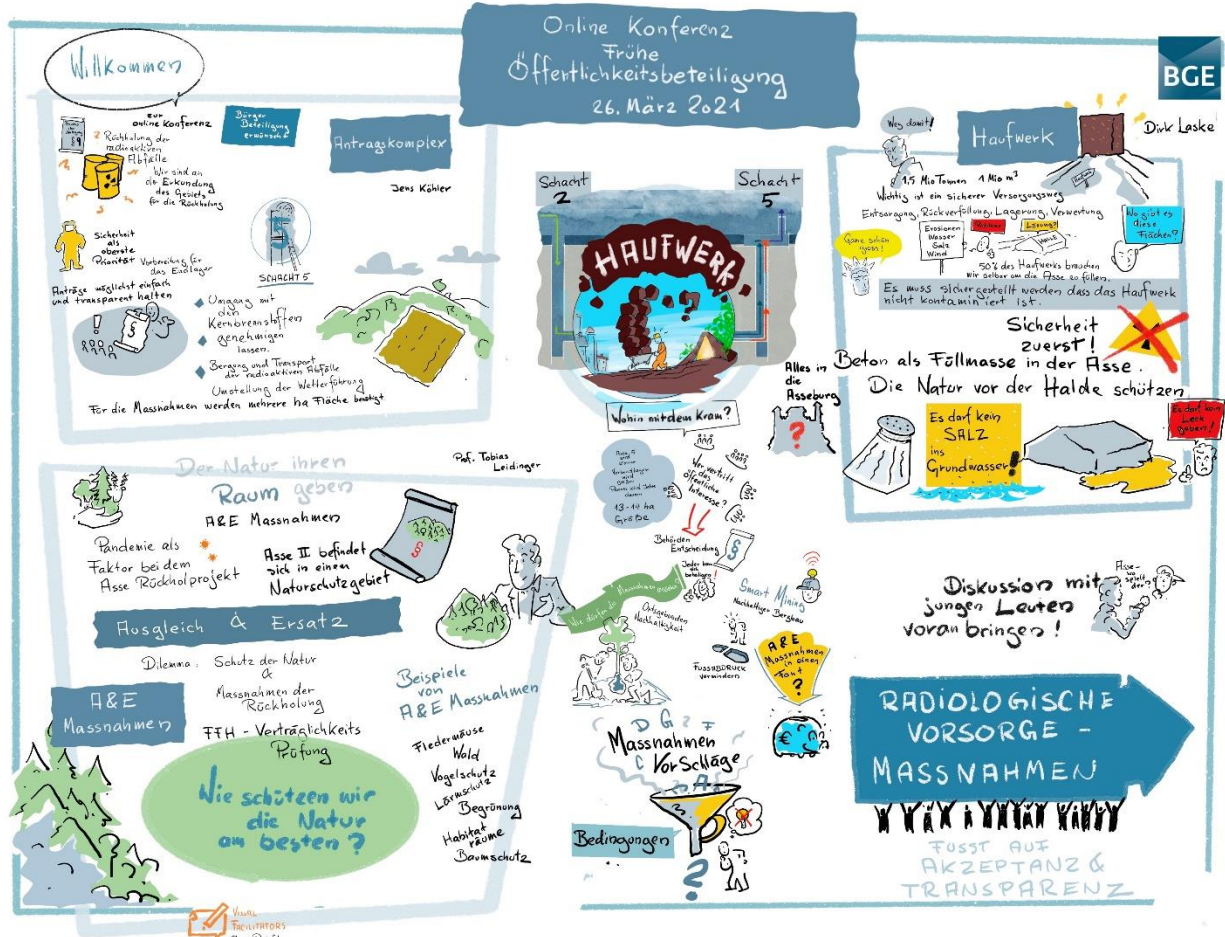 Online Konferenz
Frühe
Öffentlichkeitsbeteiligung
26. März 2021
BGE
Willkommen
zur
online Konferenz
Bürger
Beteiligung
erwünscht
§9
Rückholung der
radioaktiven
Abfälle
Wir sind an
die Erkundung
des Gebiets
für die Rückholung
Antragskomplex
Jens Köhler
Sicherheit
als
oberste
Priorität
Vorbereitung für
das Endlager
SCHACHT 5
Anträge möglichst einfach
und transparent halten
!
§
Umgang mit
den
Kernbrennstoffen
genehmigen
lassen.
Bergung und Transport
der radioaktiven Abfälle
Umstellung der Wetterführung
Für die Massnahmen werden mehrere ha Fläche benötigt
Schacht
2
Schacht
5
HAUFWERK
?
Wohin mit dem Kram?
Alles in
die
Asseburg
?
Weg damit!
Haufwerk
Dirk Laske
1,5 Mio Tonnen 1 Mio m³
Wichtig ist ein sicherer Versorgungsweg
Entsorgung, Rückverfüllung, Lagerung, Verwertung
Ganz schön
gross!
Erosionen
Wasser
Salz
Wind
Lösung?
HALDE
Wo gibt es
diese
Flächen?
50% des Haufwerks brauchen
wir selber um die Asse zu füllen.
Es muss sichergestellt werden dass das Haufwerk
nicht kontaminiert ist.
Sicherheit
zuerst!
Beton als Füllmasse in der Asse.
Die Natur vor der Halde schützen
Es darf kein
SALZ
ins
Grundwasser!
Es darf kein
Leck
geben!
Der Natur ihren
Raum geben
Prof. Tobias
Leidinger
A&E Massnahmen
Pandemie als
Faktor bei dem
Asse Rückholprojekt
Asse II befindet
sich in einem
Naturschutzgebiet
§
Ausgleich & Ersatz
Dilemma: Schutz der Natur
&
Massnahmen der
Rückholung
FFH - Verträglichkeits
Prüfung
A&E
Massnahmen
Wie schützen wir
die Natur
am besten?
Beispiele
von
A&E Massnahmen
Fledermäuse
Wald
Vogelschutz
Lärmschutz
Begrünung
Habitat
räume
Baumschutz
13-14 ha
Größe
Wer vertritt
das
öffentliche
Interesse?
Behörden
Entscheidung
§
Jeder kann
sich
beteiligen
Ortsgebundene
Nachhaltigkeit
Smart Mining
Nachhaltiger Bergbau
FUSSABDRUCK
vermindern
A & E
Massnahmen
in einen
Font
?
€
D G ? F
Massnahmen
C Vorschläge
A
Bedingungen
?
Diskussion mit
jungen Leuten
voran bringen!
Asse -
wo
spielt
der?
RADIOLOGISCHE
VORSORGE -
MASSNAHMEN
FUSST AUF
AKZEPTANZ &
TRANSPARENZ
VISUAL
FACILITATORS